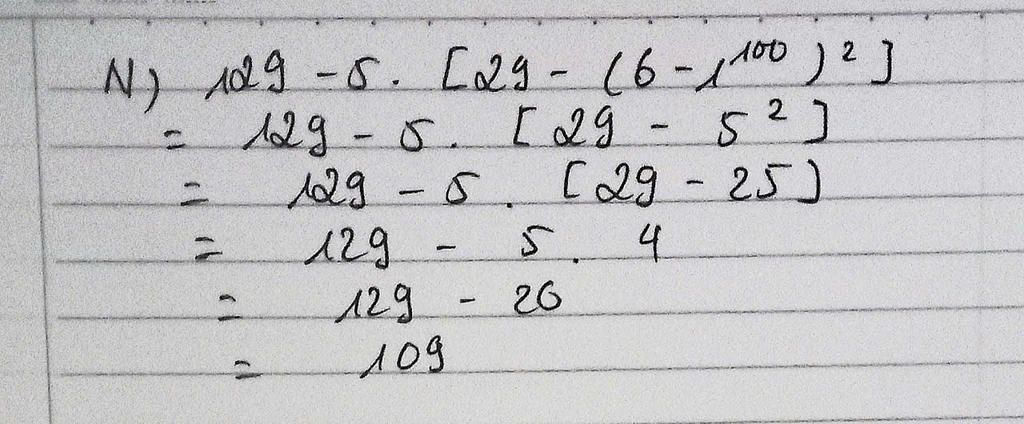 N) 129 - 5. [29 - (6 - 1¹⁰⁰)²]
= 129 - 5. [29 - 5²]
= 129 - 5. [29 - 25]
= 129 - 5. 4
= 129 - 20
= 109